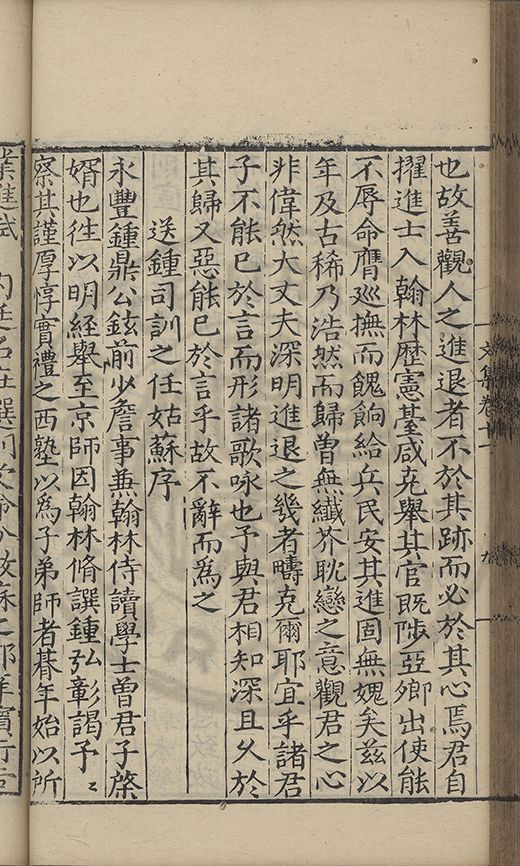 也故善觀人之進退者不於其跡而必於其心焉君自
擢進士入 翰林歷憲臺咸克舉其官既陟亞卿出使能
不辱命膺巡撫而餽餉給兵民安其進固無媿矣茲以
年及古稀乃浩然而歸曾無纖芥耽戀之意觀君之心
非偉然大丈夫深明進退之幾者疇克爾耶宜乎諸君
子不能已於言而形諸歌咏也予與君相知深且久於
其歸又惡能已於言乎故不辭而爲之
送鍾司訓之任姑蘇序
永豐鍾鼎公鉉前少詹事兼翰林侍讀學士曾君子棨
婿也徃以明經舉至京師因翰林脩譔鍾弘彰謁予〻
察其謹厚惇實禮之西塾以爲子弟師者朞年始以所
文集卷十一